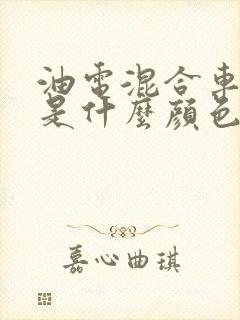 油電混合車
是什麼顏色
嘉心曲琪